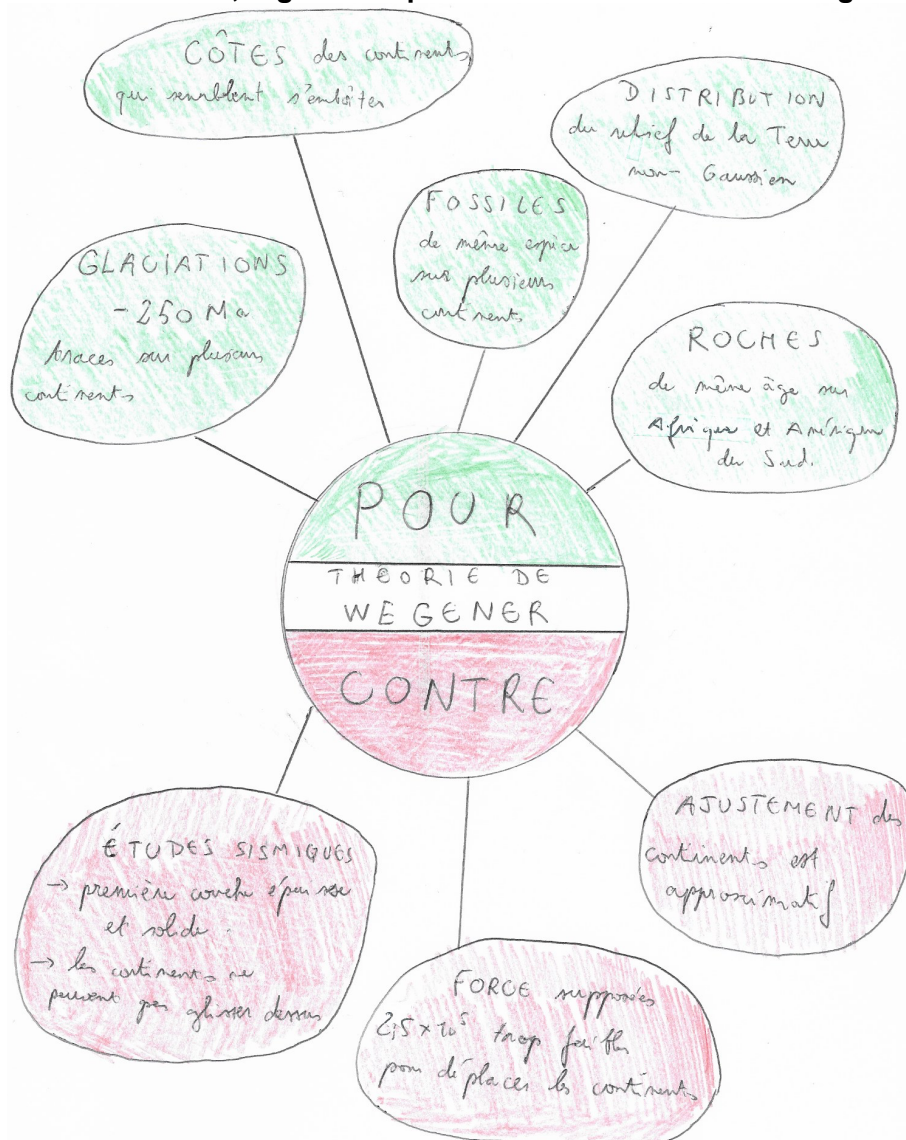 CÔTES des continents
qui semblent s'emboîter
DISTRIBUTION
du relief de la Terre
non-Gaussien
FOSSILES
de même espèce
sur plusieurs
continents
GLACIATIONS
-250 Ma
traces sur plusieurs
continents
ROCHES
de même âge sur
Afrique et Amérique
du Sud.
POUR
THÉORIE DE
WEGENER
CONTRE
ÉTUDES SISMIQUES
→ première couche épaisse
et solide.
→ les continents ne
peuvent pas glisser dessus
FORCE supposées
2,5 × 10⁵ trop faibles
pour déplacer les continents
AJUSTEMENT des
continents est
approximatif